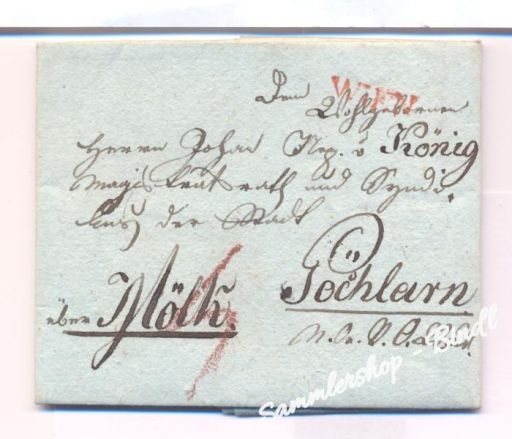 WIEN
Dem
Wohlgebornen
Herrn Johan Nep. v König
Magistratsrath und Syndi-
kus der Stadt
Pöchlarn
über Mölk.
Sammlershop - Biadl